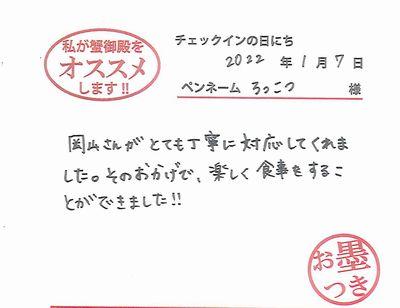 私が蟹御殿を
オススメ
します!!
チェックインの日にち
2022 年 1 月 7 日
ペンネーム ろっこつ 様
岡山さんがとても丁寧に対応してくれま
した。そのおかげで、楽しく食事をするこ
とができました!!
お墨
つき